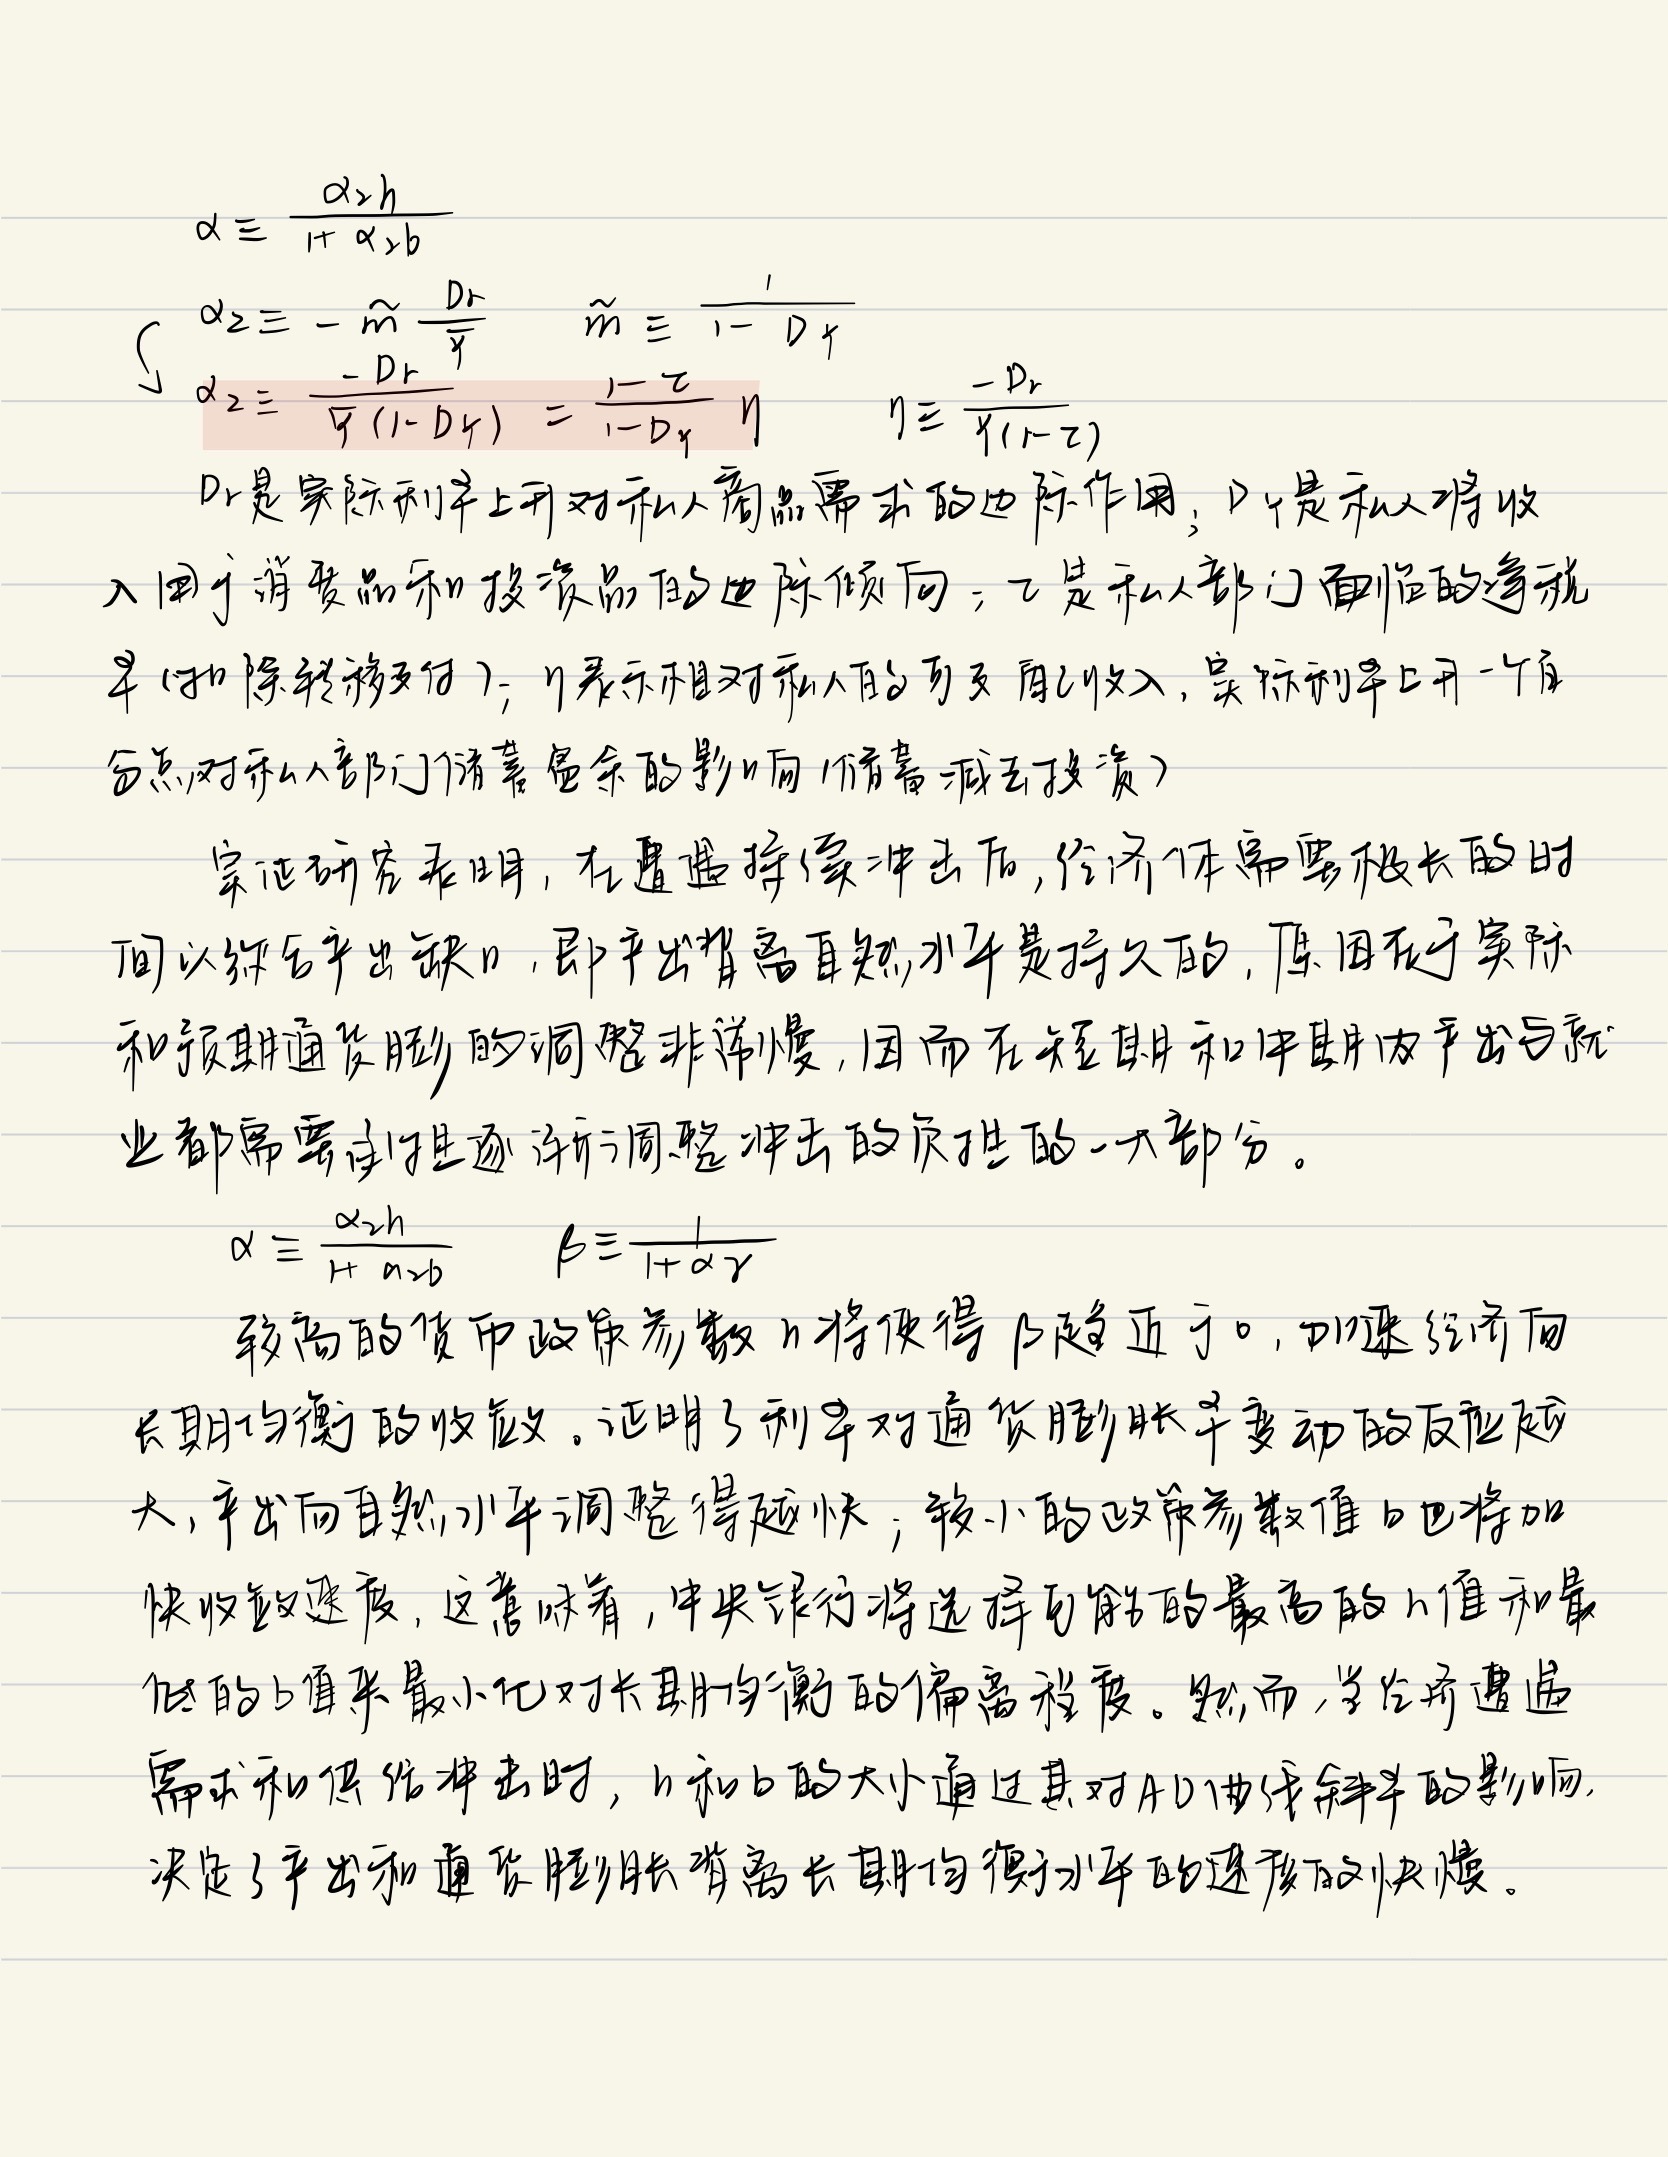 α ≡ α₂h / (1 + α₂b)
α₂ ≡ − m̃ Dr / Ȳ　　m̃ ≡ 1 / (1 − DY)
α₂ ≡ −Dr / (Ȳ(1−DY)) = (1−τ) / (1−DY) η　　η ≡ −Dr / (Y(1−τ))
Dr是实际利率上升对私人商品需求的边际作用；DY是私人将收
入用于消费品和投资品的边际倾向；τ是私人部门面临的净税
率（扣除转移支付）；η表示相对私人的可支配收入，实际利率上升一个百
分点对私人部门储蓄盈余的影响（储蓄减去投资）
实证研究表明，在遭遇持续冲击后，经济体需要极长的时
间以弥合产出缺口，即产出背离自然水平是持久的，原因在于实际
和预期通货膨的调整非常慢，因而在短期和中期内产出与就
业都需要承担逐渐调整冲击的负担的一大部分。
α ≡ α₂h / (1 + α₂b)　　β ≡ 1 / (1 + αγ)
较高的货币政策参数h将使得β趋近于0，加速经济向
长期均衡的收敛。证明了利率对通货膨胀率变动的反应越
大，产出向自然水平调整得越快；较小的政策参数值b也将加
快收敛速度，这意味着，中央银行将选择可能的最高的h值和最
低的b值来最小化对长期均衡的偏离程度。然而，当经济遭遇
需求和供给冲击时，h和b的大小通过其对AD曲线斜率的影响，
决定了产出和通货膨胀背离长期均衡水平的速度的快慢。